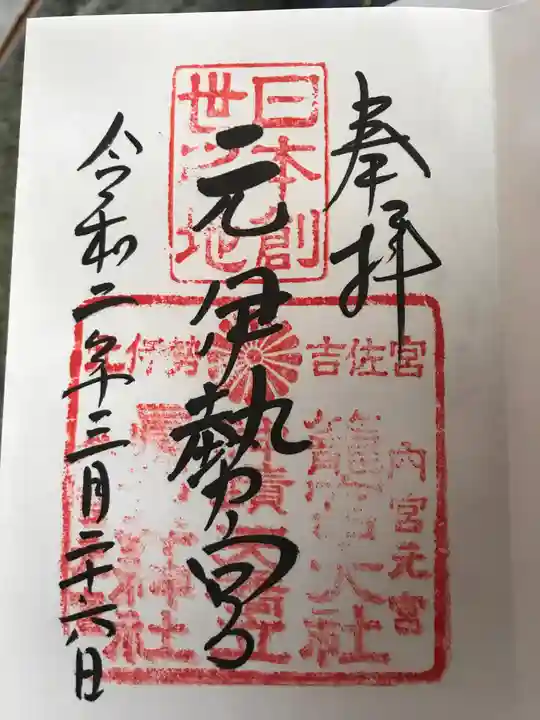 奉拝
日本創
世之地
元伊勢宮
吉佐宮
元伊勢
内宮元宮
大社
神社
令和二年三月二十六日